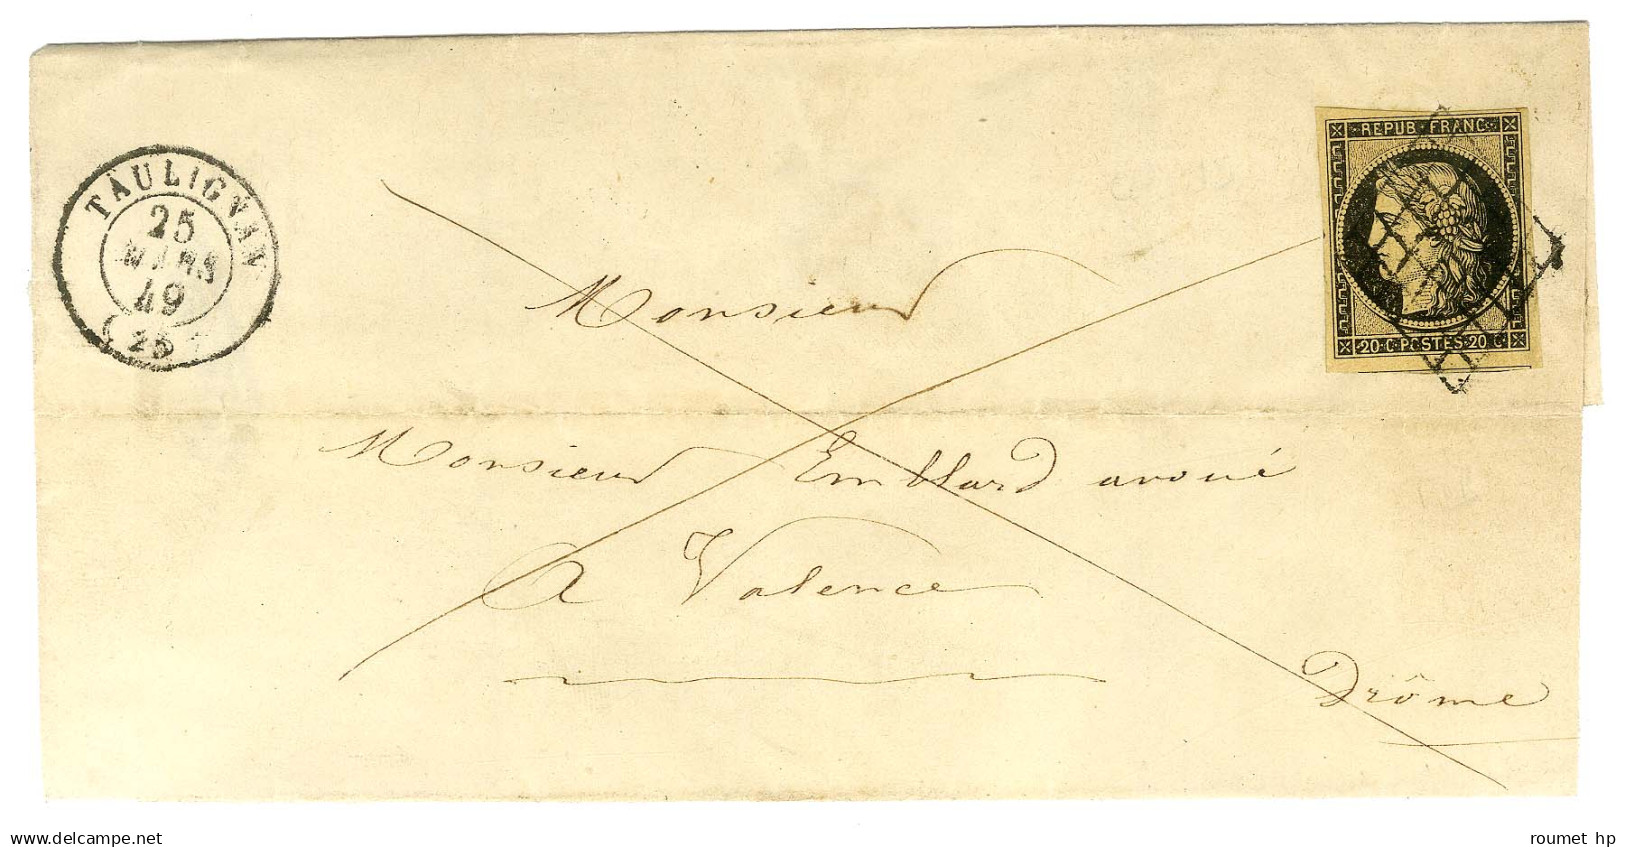 REPUB·FRANC·
TAULIGNAN
25
MARS
49
(25)
20·C·POSTES·20·C·
Monsieur
Monsieur Emblard avoué
A Valence
Drôme
www.delcampe.net
roumet hp